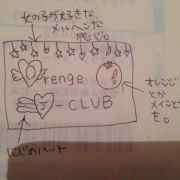 女の子が好きな
メルヘンな
感じ。
Orenge
J-CLUB
オレンジ
とか
メインで
を。
にじのハート